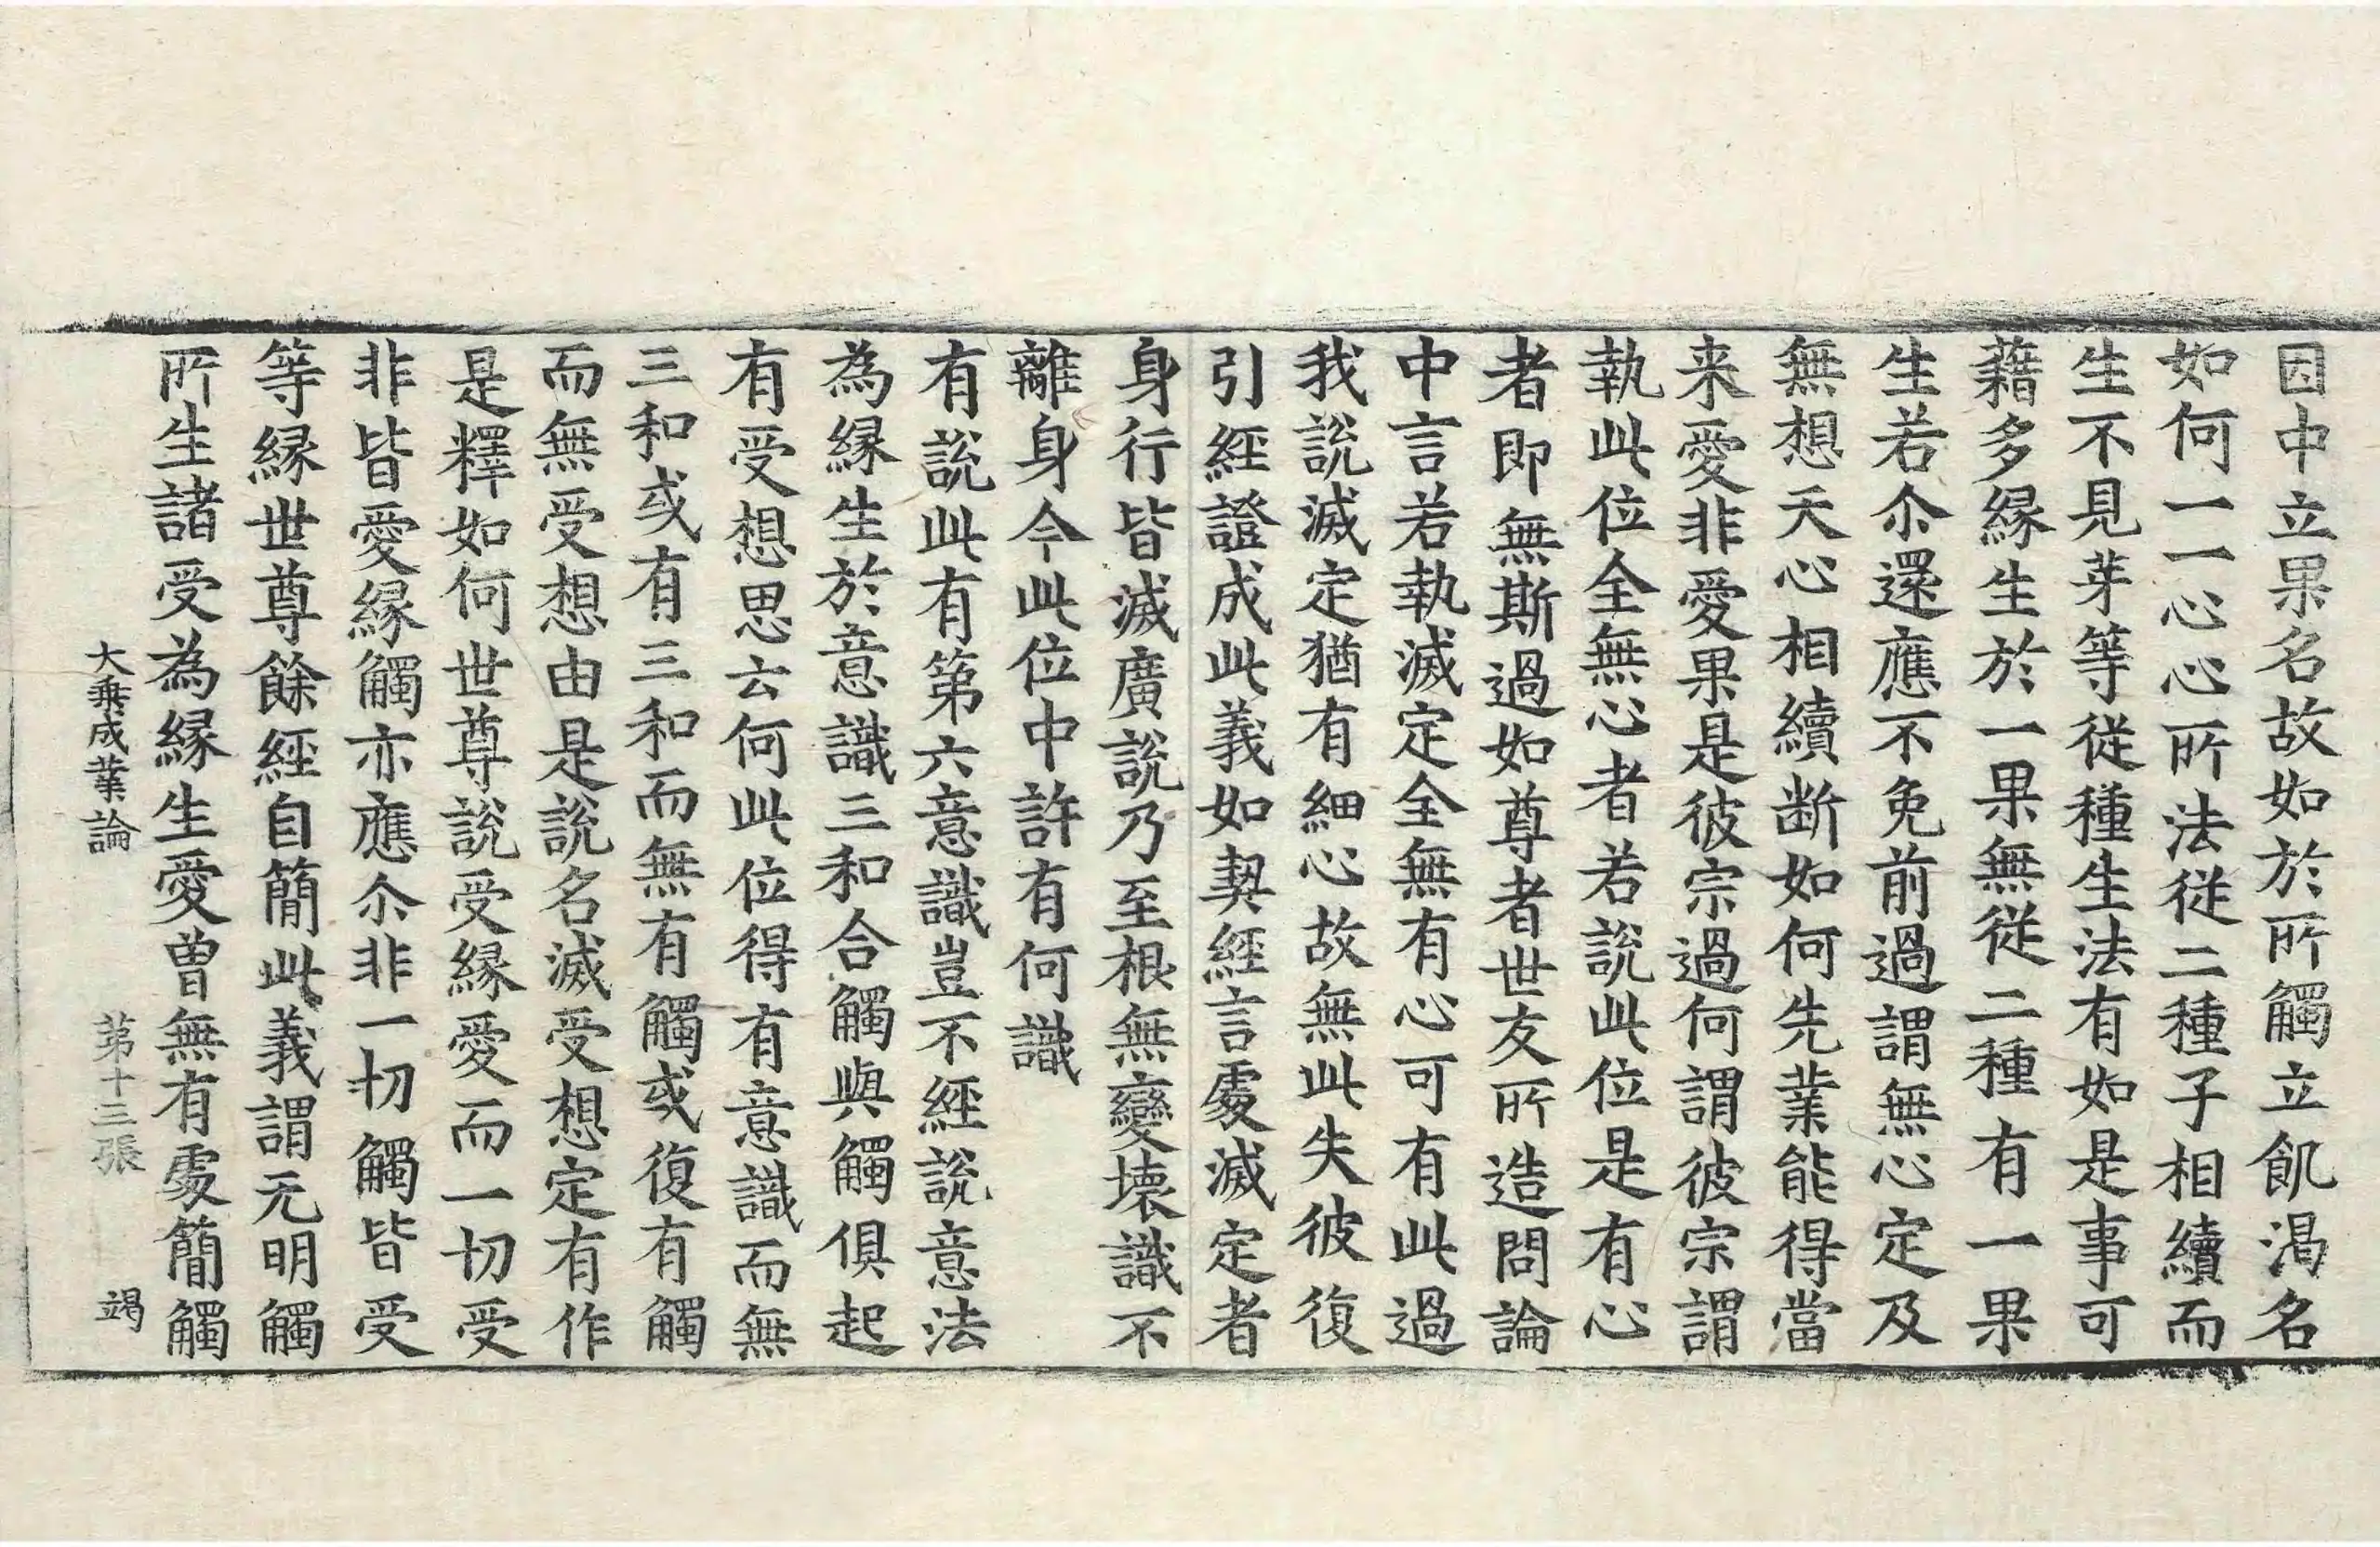 因中立果名故如於所觸立飢渴名
如何一一心心所法從二種子相續而
生不見芽等從種生法有如是事可
藉多緣生於一果無從二種有一果
生若尒還應不免前過謂無心定及
無想天心相續断如何先業能得當
来愛非愛果是彼宗過何謂彼宗謂
執此位全無心者若說此位是有心
者即無斯過如尊者世友所造問論
中言若執滅定全無有心可有此過
我說滅定猶有細心故無此失彼復
引經證成此義如契經言處滅定者
身行皆滅廣說乃至根無變壞識不
離身今此位中許有何識
有說此有第六意識豈不經說意法
為緣生於意識三和合觸與觸俱起
有受想思云何此位得有意識而無
三和或有三和而無有觸或復有觸
而無受想由是說名滅受想定有作
是釋如何世尊說受緣愛而一切受
非皆愛緣觸亦應尒非一切觸皆受
等緣世尊餘經自簡此義謂无明觸
所生諸受為緣生愛曾無有處簡觸
大乗成業論 第十三張 竭